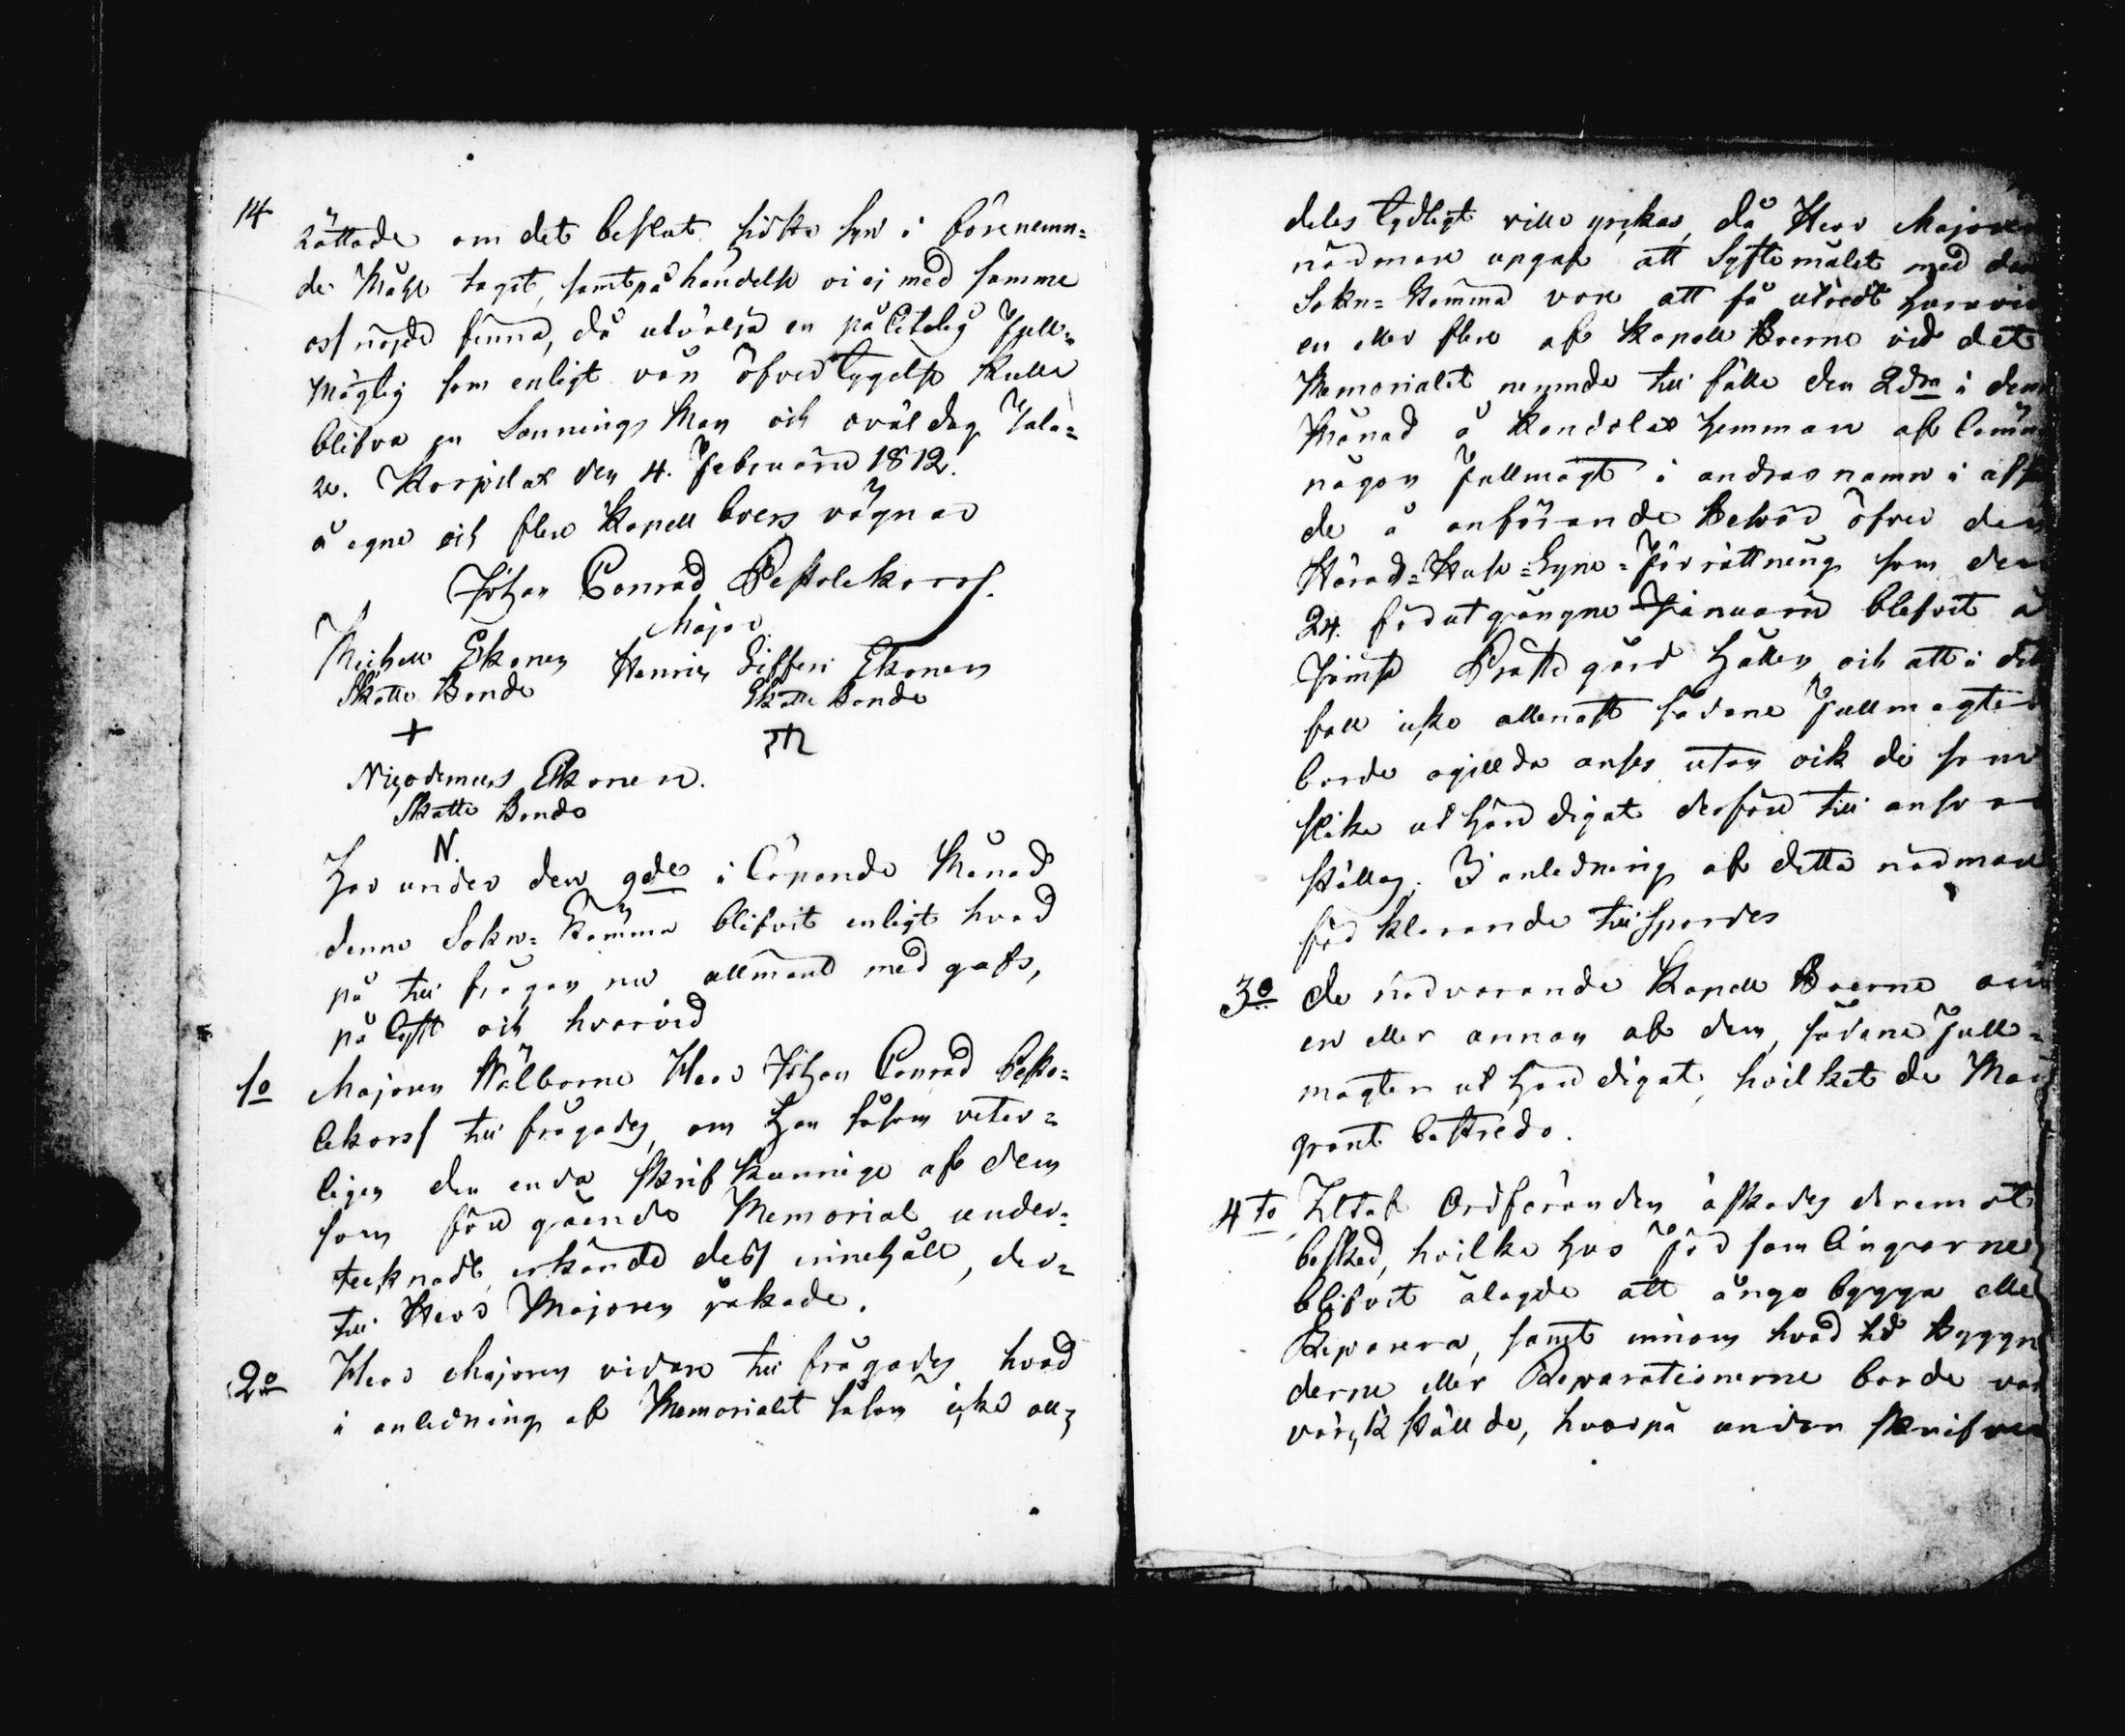 14
rättade om det beslut sidste syn i förenemn=
de Måhl tagit, samt på händelse vi ej med samma
oss nögde finna, då utvälja en pålitelig Full=
mägtig som enligt vår öfvertygelse skulle
blifva en Sannings Man och oväldig Tala=
re. Korpilax den 4. Februarii 1812.
å egne och flere Kapell boers vägnar
Johan Conrad Pistolekors.
Major.
Michell Ekonen Henric Ekonen
Skatte Bonde Skatte Bonde
+
Nicodemus Ekonen.
Skatte Bonde
N.
Har under den 9de i löpande Månad
denne Sokn=Stämma blifvit enligt hvad
på tillfrågan nu allmänt medgafs,
pålyst och hvarvid
1o Majoren Wälborne Herr Johan Conrad Pisto=
lekors tillfrågades, om han såsom veter=
ligen den enda skrifkunnige af dem
som föregående Memorial under=
tecknadt, erkände dess innehåll, der=
till Herr Majoren jakade.
2o Herr Majoren vidare tillfrågades hvad
i anledning af Memorialet såsom icke all=
deles tydligt ville yrkas, då Herr Majoren
närmare upgaf att Syftemålet med den
Sokn=Stämma vore att få utredt huruvida
en eller flere af Kapell Boerne vid det
Memorialet nemnde tillfälle den 2dra i denne
Månad å hemman af lämnat
någon Fullmagt i andras namn i afse
de å anförande Besvär öfver den
Härad=Huse=Syne=Förrättning som den
24. förutgångne Januarii blifvit å
Jämsä Prästegård hållen och att i det
fall icke allenast sådane Fullmagter
borde ogillda anses utan ock de som
slika uthändigat derföre till ansvar
ställas. I anledning af detta närmare
förklarande tillspordes
3o de närvarande Kapell Boerne om
en eller annan af dem, sådane Full=
magter uthändigat, hvilket de Man
grant bestredo.
4to Utaf Ordföranden äskades deremot
besked, hvilka hus Församlingarne
blifvit ålagde att å nyo bygga eller
Reparera, samt innom hvad tid Byggna
derne eller Reparationerne borde vara
värckställde, hvarpå undan skrifven